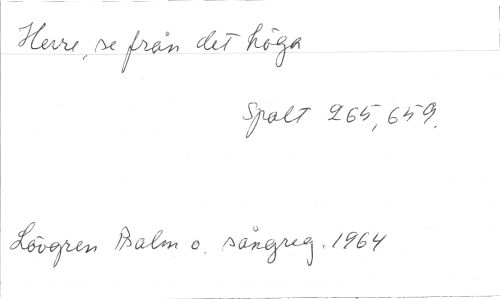 Herre, se från det höga
Spalt 265, 659.
Lövgren Psalm o. sångreg. 1964